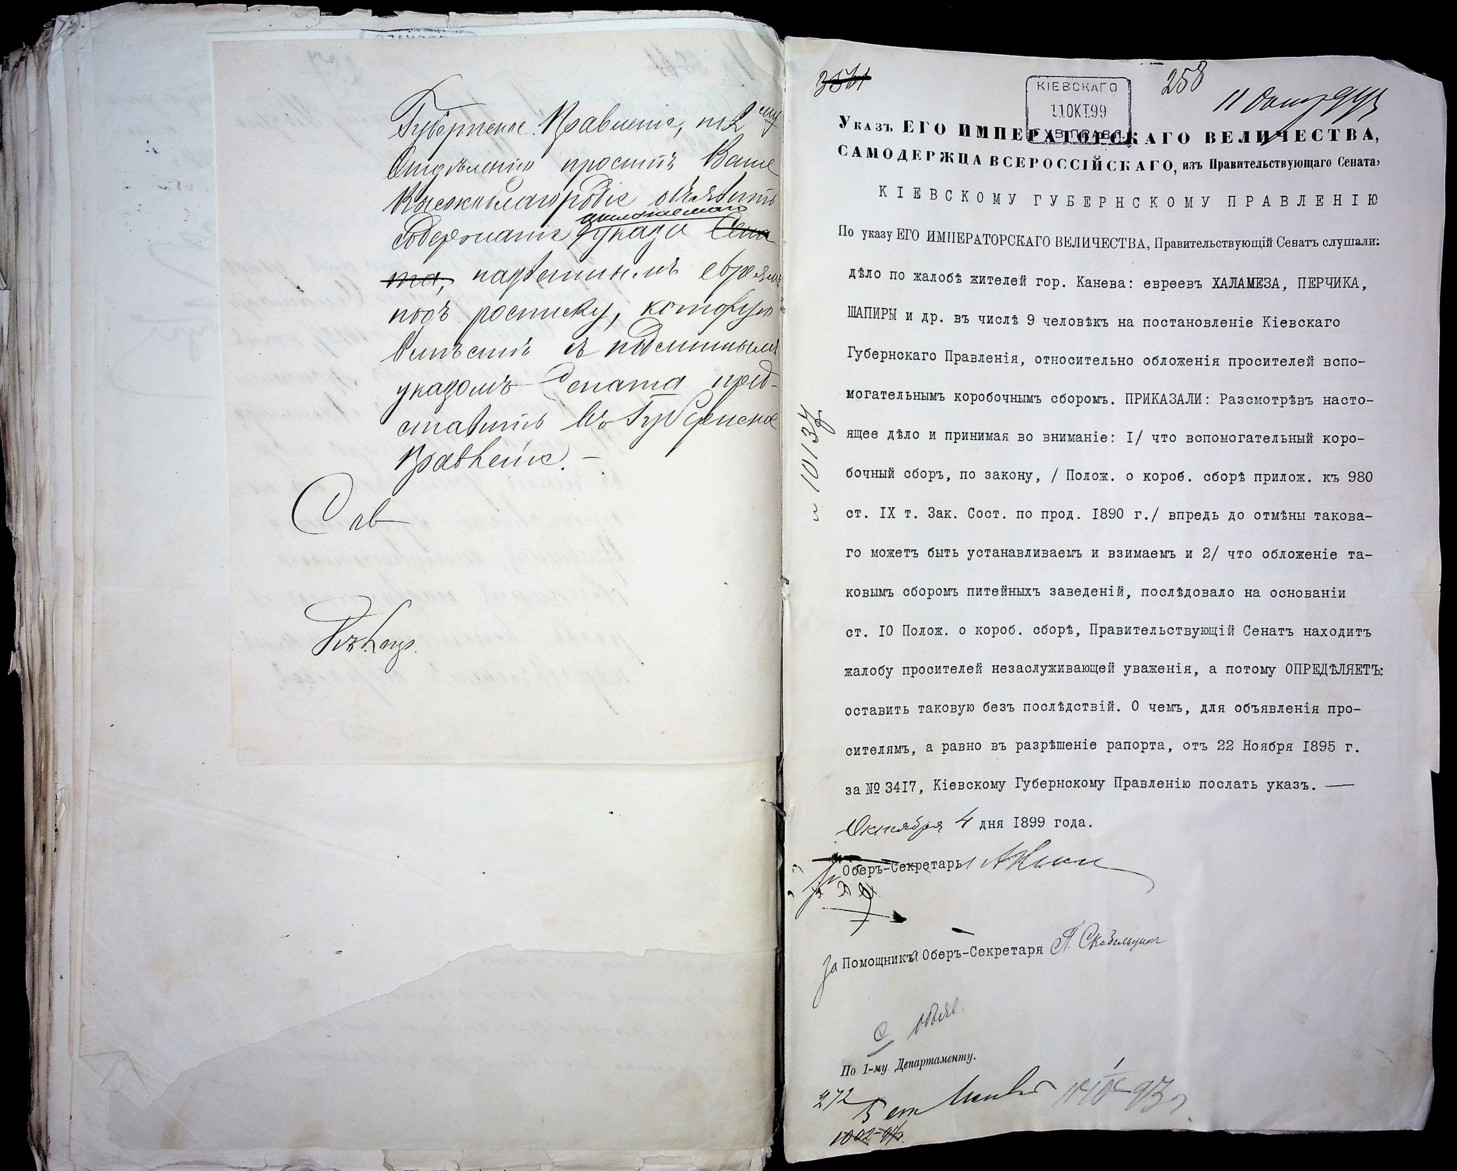 Губернское Правленіе, по 2му
Отдѣленію проситъ Ваше
Высокоблагородіе объявить
прилагаемаго
содержаніе указа Сена
та, нареченнымъ евреямъ
подъ росписку, которую
вмѣстѣ съ подлиннымъ
указомъ Сената пред-
ставить въ Губернское
Правленіе. —
Сов
3561
258
КІЕВСКАГО
11 ОКТ.99
ГУБ.ПРАВЛ.
Указъ ЕГО ИМПЕРАТОРСКАГО ВЕЛИЧЕСТВА,
САМОДЕРЖЦА ВСЕРОССІЙСКАГО, изъ Правительствующаго Сената,
КІЕВСКОМУ ГУБЕРНСКОМУ ПРАВЛЕНІЮ
По указу ЕГО ИМПЕРАТОРСКАГО ВЕЛИЧЕСТВА, Правительствующій Сенатъ слушали:
дѣло по жалобѣ жителей гор. Канева: евреевъ ХАЛАМЕЗА, ПЕРЧИКА,
ШАПИРЫ и др. въ числѣ 9 человѣкъ на постановленіе Кіевскаго
Губернскаго Правленія, относительно обложенія просителей вспо-
могательнымъ коробочнымъ сборомъ. ПРИКАЗАЛИ: Разсмотрѣвъ насто-
ящее дѣло и принимая во вниманіе: I/ что вспомогательный коро-
бочный сборъ, по закону, / Полож. о короб. сборѣ прилож. къ 980
ст. IX т. Зак. Сост. по прод. 1890 г./ впредь до отмѣны такова-
го можетъ быть устанавливаемъ и взимаемъ и 2/ что обложеніе та-
ковымъ сборомъ питейныхъ заведеній, послѣдовало на основаніи
ст. I0 Полож. о короб. сборѣ, Правительствующій Сенатъ находитъ
жалобу просителей незаслуживающей уваженія, а потому ОПРЕДѢЛЯЕТЪ:
оставить таковую безъ послѣдствій. О чемъ, для объявленія про-
сителямъ, а равно въ разрѣшеніе рапорта, отъ 22 Ноября 1895 г.
за № 3417, Кіевскому Губернскому Правленію послать указъ. —
Октября 4 дня 1899 года.
Оберъ-Секретарь
За Помощника Оберъ-Секретаря
По 1-му Департаменту.
272